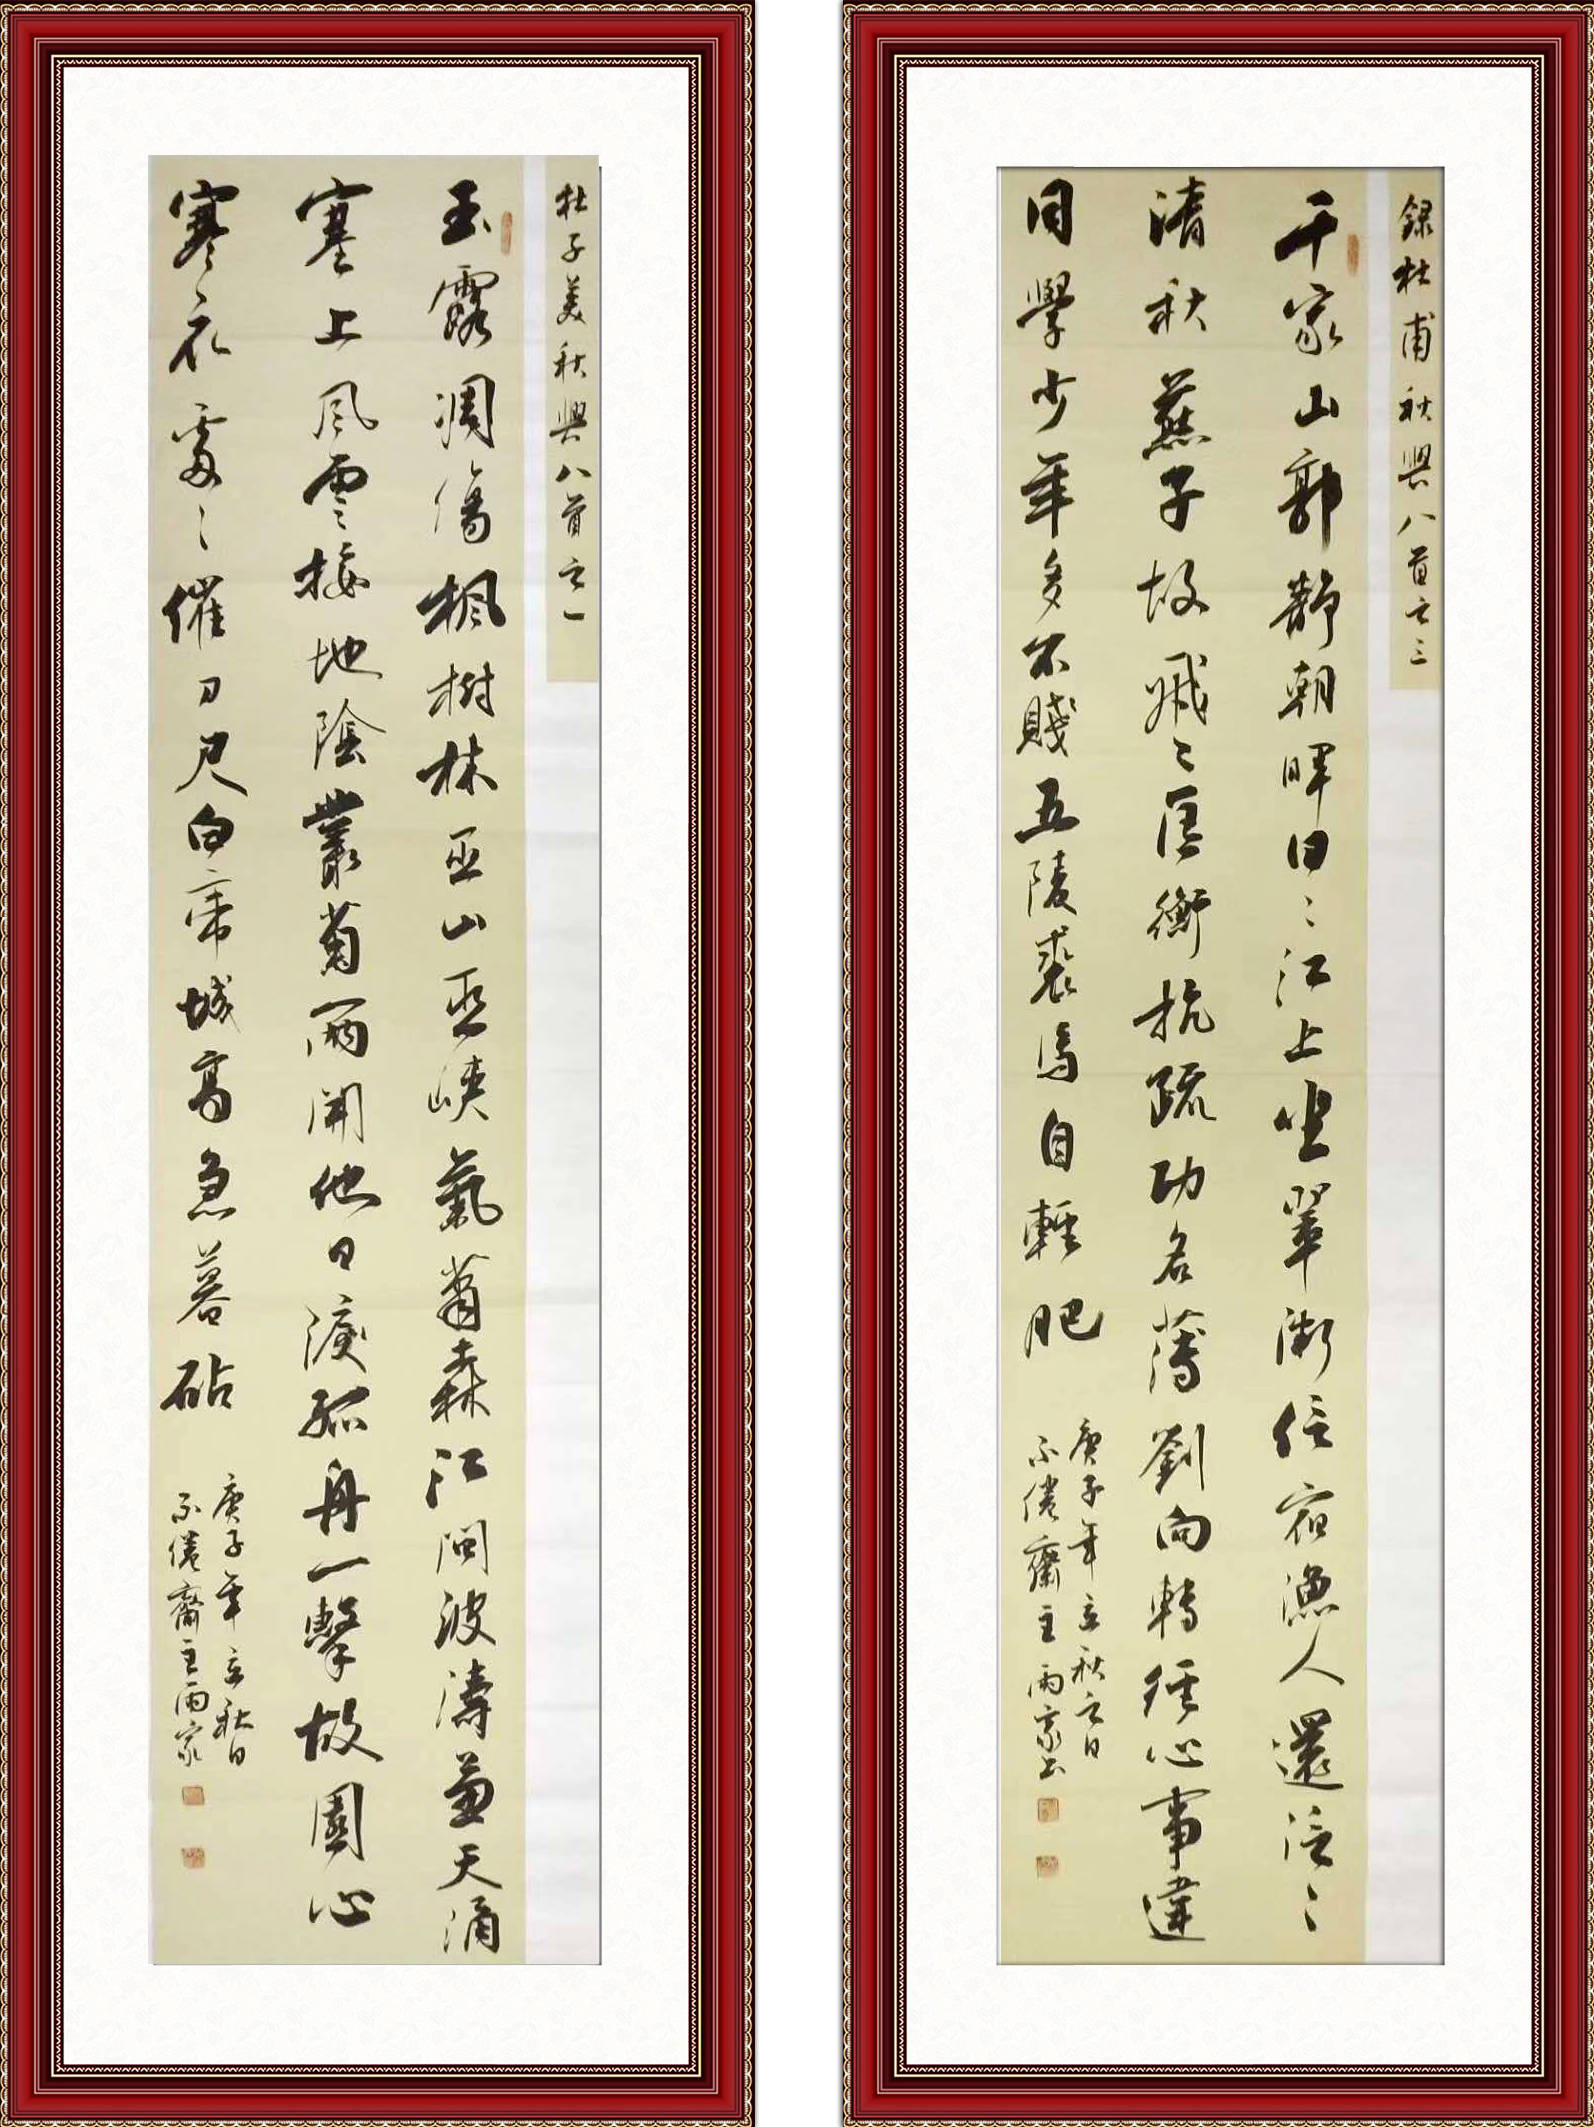 杜子美秋興八首之一
玉露凋傷楓樹林巫山巫峽氣蕭森江間波濤兼天涌
塞上風雲接地陰叢菊兩開他日淚孤舟一擊故園心
寒衣處〻催刀尺白帝城高急暮砧
庚子年立秋日
不倦齋主雨家
錄杜甫秋興八首之三
千家山郭靜朝暉日〻江上坐翠微信宿漁人還泛〻
清秋燕子故飛〻匡衡抗疏功名薄劉向轉經心事違
同學少年多不賤五陵裘馬自輕肥
庚子年立秋之日
不倦齋主雨家書